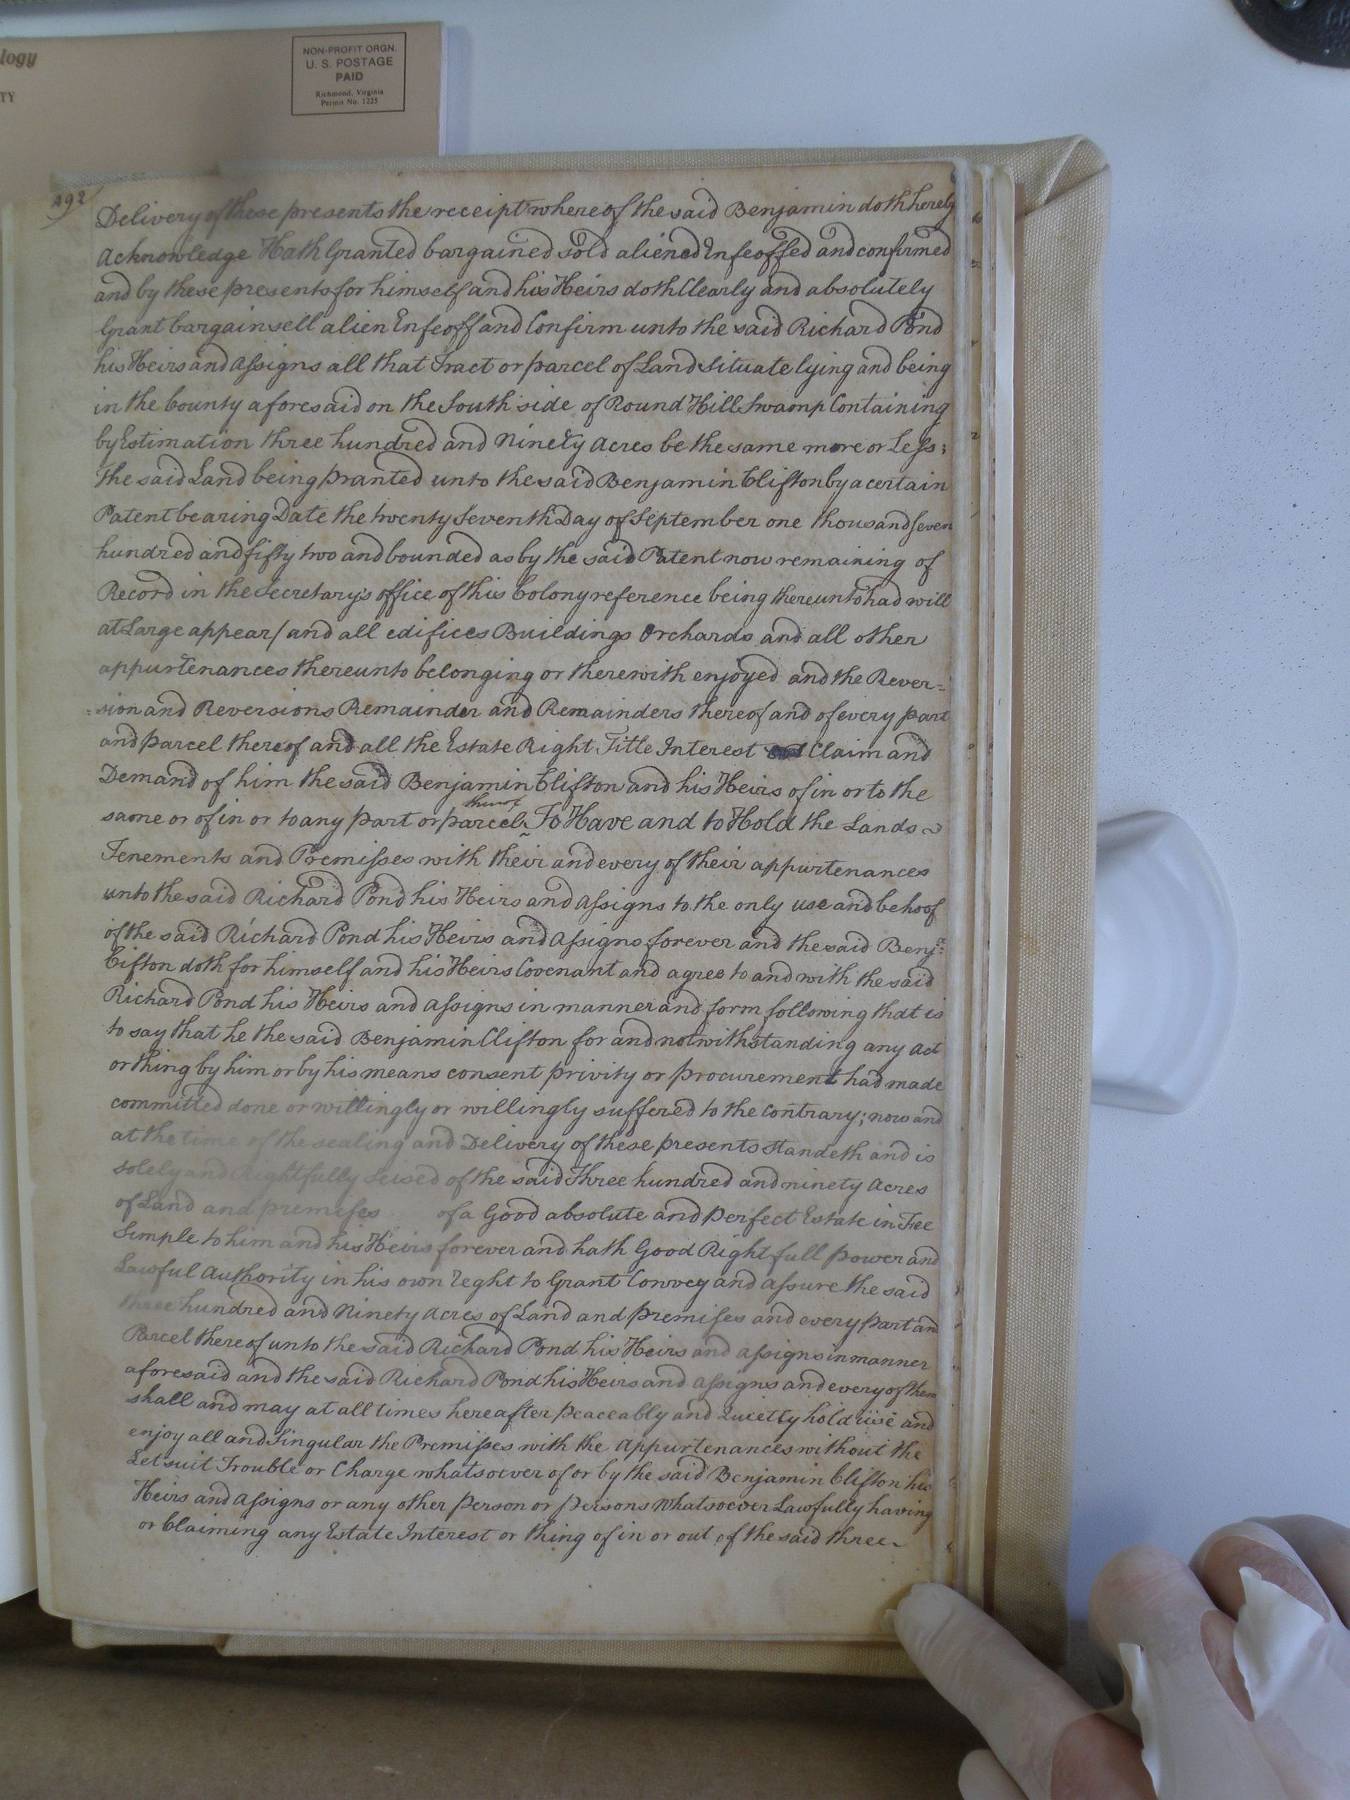 logy
TY
NON-PROFIT ORGN.
U. S. POSTAGE
PAID
Richmond, Virginia
Permit No. 1225
492
Delivery of these presents the receipt whereof the said Benjamin doth hereby
Acknowledge Hath Granted bargained sold aliened Infeoffed and confirmed
and by these presents for himself and his Heirs doth Clearly and absolutely
Grant bargain sell alien Enfeoff and Confirm unto the said Richard Pond
his Heirs and assigns all that Tract or parcel of Land situate lying and being
in the County aforesaid on the South side of Round Hill Swamp Containing
by Estimation three hundred and Ninety Acres be the same more or Less;
the said Land being Granted unto the said Benjamin Clifton by a certain
Patent bearing Date the twenty Seventh Day of September one thousand seven
hundred and fifty two and bounded as by the said Patent now remaining of
Record in the Secretary's office of this Colony reference being thereunto had will
at Large appear/ and all edifices Buildings Orchards and all other
appurtenances thereunto belonging or therewith enjoyed and the Rever=
=sion and Reversions Remainder and Remainders thereof and of every part
and parcel thereof and all the Estate Right Title Interest Claim and
Demand of him the said Benjamin Clifton and his Heirs of in or to the
same or of in or to any part or parcel thereof To Have and to Hold the Lands
Tenements and Premisses with their and every of their appurtenances
unto the said Richard Pond his Heirs and assigns to the only use and behoof
of the said Richard Pond his Heirs and assigns forever and the said Benja:
Cifton doth for himself and his Heirs Covenant and agree to and with the said
Richard Pond his Heirs and assigns in manner and form following that is
to say that he the said Benjamin Clifton for and notwithstanding any act
or thing by him or by his means consent privity or procurement had made
committed done or willingly or willingly suffered to the contrary; now and
at the time of the sealing and Delivery of these presents standeth and is
solely and Rightfully seised of the said Three hundred and ninety Acres
of Land and premises of a Good absolute and perfect Estate in Fee
Simple to him and his Heirs forever and hath Good Right full power and
Lawful Authority in his own reght to Grant Convey and assure the said
three hundred and Ninety acres of Land and premises and every part and
Parcel thereof unto the said Richard Pond his Heirs and assigns in manner
aforesaid and the said Richard Pond his Heirs and assigns and every of them
shall and may at all times hereafter peaceably and Quietly hold use and
enjoy all and Singular the Premisses with the appurtenances without the
Let suit Trouble or Charge whatsoever of or by the said Benjamin Clifton his
Heirs and assigns or any other person or persons Whatsoever Lawfully having
or Claiming any Estate Interest or thing of in or out of the said three